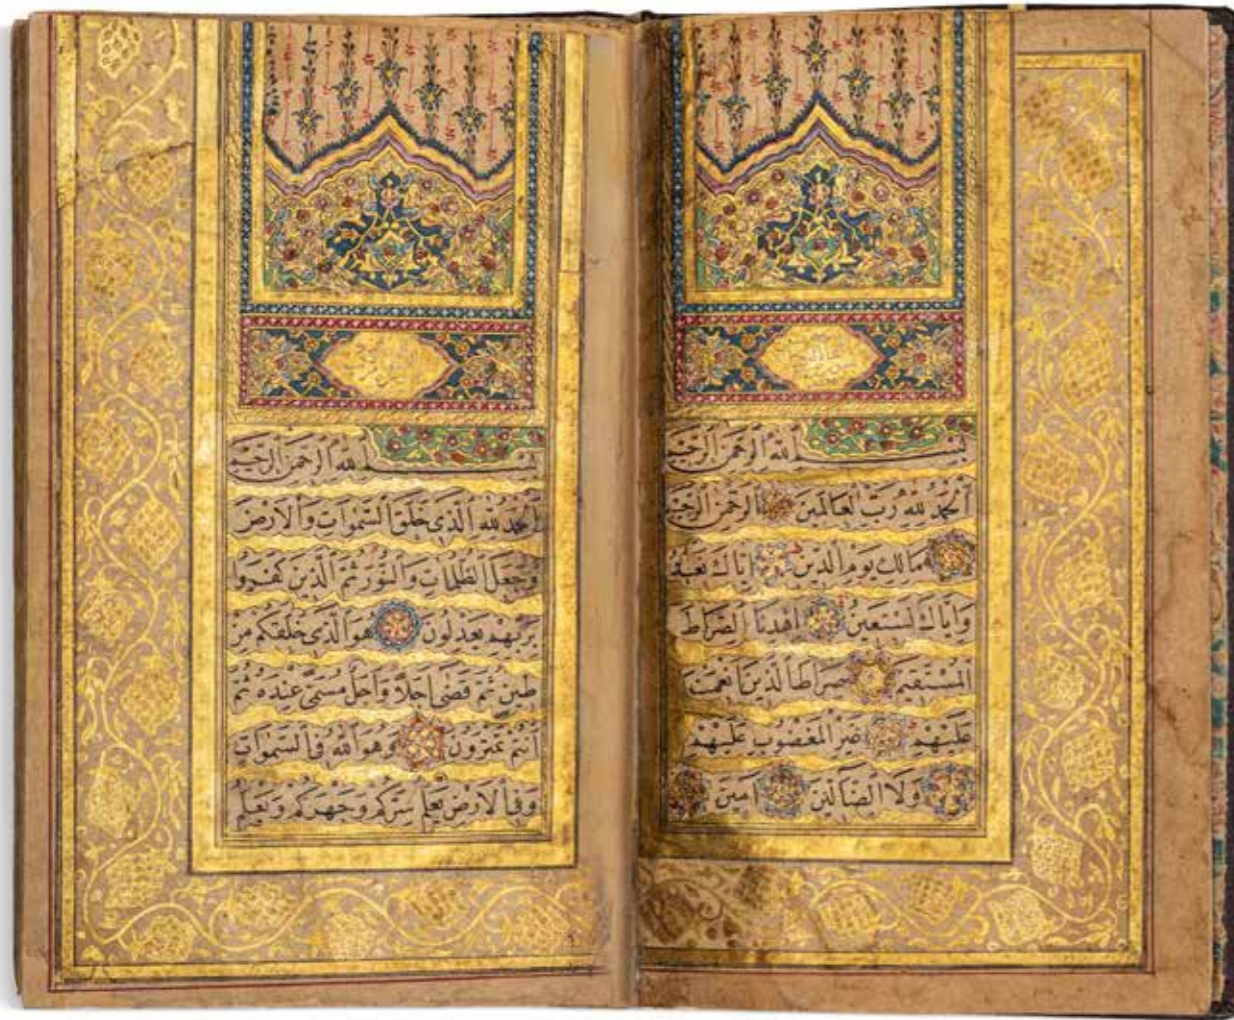 بسم الله الرحمن الرحيم
الحمد لله رب العالمين الرحمن الرحيم
مالك يوم الدين اياك نعبد
واياك نستعين اهدنا الصراط
المستقيم صراط الذين انعمت
عليهم غير المغضوب عليهم
ولا الضالين امين
بسم الله الرحمن الرحيم
الحمد لله الذي خلق السموات والارض
وجعل الظلمات والنور ثم الذين كفروا
بربهم يعدلون هو الذي خلقكم من
طين ثم قضى اجلا واجل مسمى عنده ثم
انتم تمترون وهو الله في السموات
وفي الارض يعلم سركم وجهركم ويعلم